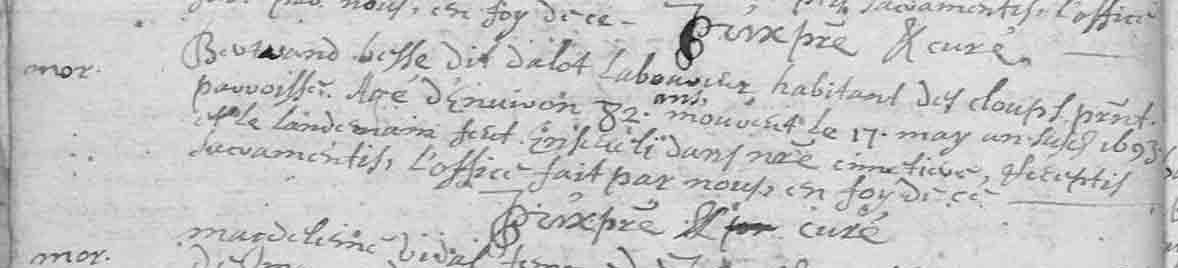 nous, en foy de ce - sacramentis, l'office
prẽ & curé
mor. Bertrand besse dit dalot laboureur habitant des cloups, prñt.
parroisse. Agé d'environ 82. ans, mourut le 17. may an susd 1693
et le landemain feut enseveli dans nrẽ cimetiere, receptis
sacramentis, l'office fait par nous, en foy de ce
prẽ & curé
mor. magdeleine vidal